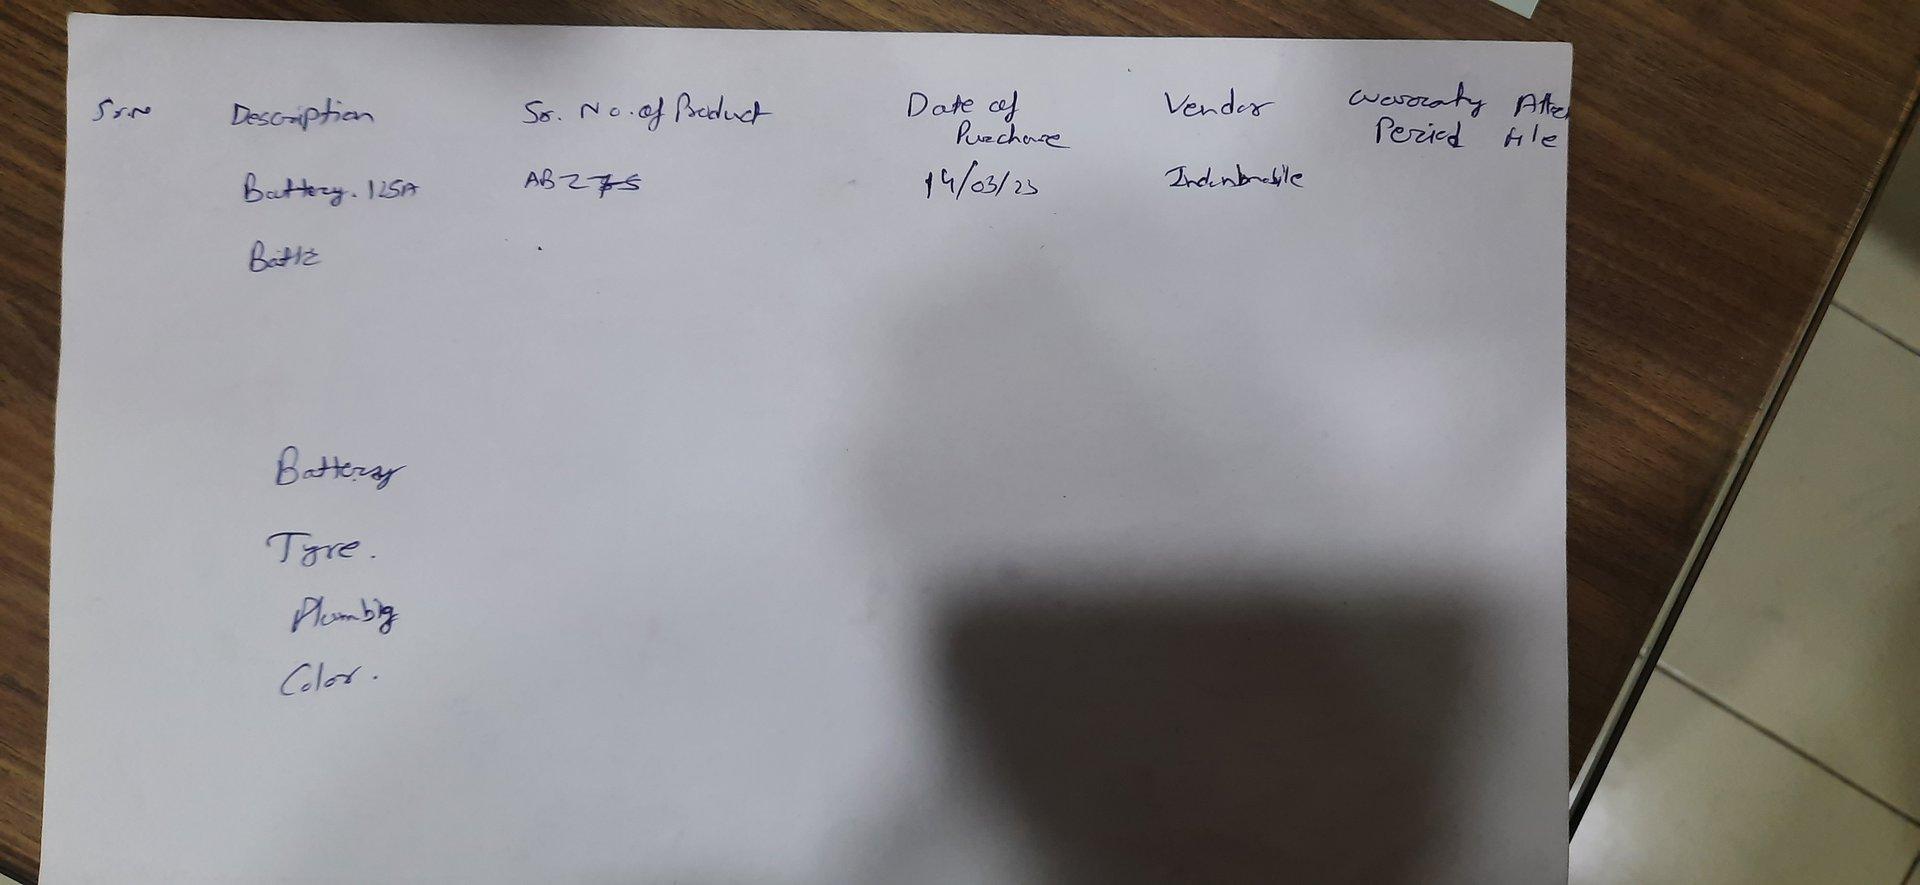 Sr.No Description Sr. No. of Product Date of Purchase Vendor Warranty Period Attach file
Battery. 125A AB275 14/03/23
Batte
Battery
Tyre.
Plumbig
Color.